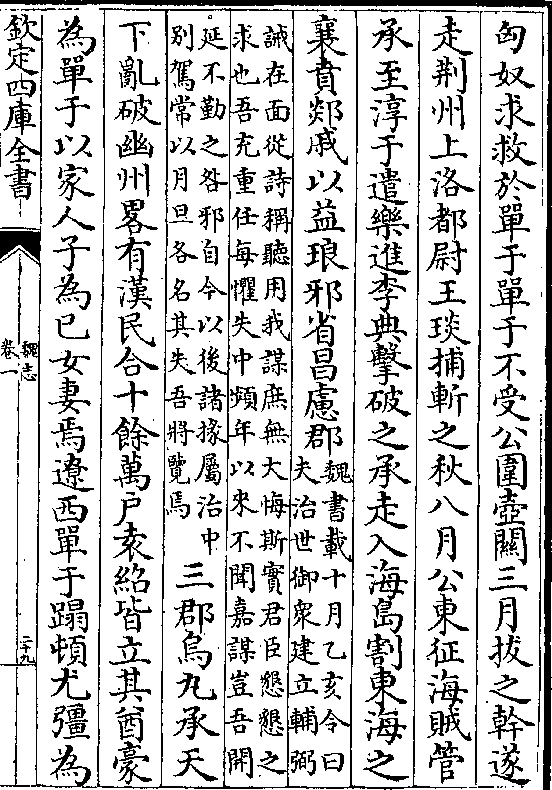 匈奴求救於單于單于不受公圍壺關三月拔之幹遂
走荆州上洛都尉王琰捕斬之秋八月公東征海賊管
承至淳于遣樂進李典擊破之承走入海島割東海之
襄賁郯戚以益琅邪省昌慮郡
魏書載十月乙亥令曰
夫治世御衆建立輔弼
誡在面從詩稱聽用我謀庶無大悔斯實君臣懇懇之
求也吾充重任每懼失中頻年以來不聞嘉謀豈吾開
延不勤之咎邪自今以後諸掾屬治中
别駕常以月旦各名其失吾將覽焉
三郡烏丸承天
下亂破幽州畧有漢民合十餘萬戸袁紹皆立其酋豪
為單于以家人子為已女妻焉遼西單于蹋頓尤彊為
欽定四庫全書
魏志
卷一
二十九